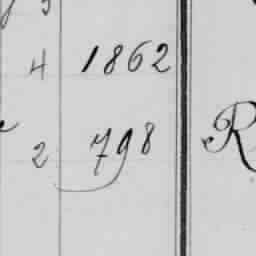 4 1862
2 798 R